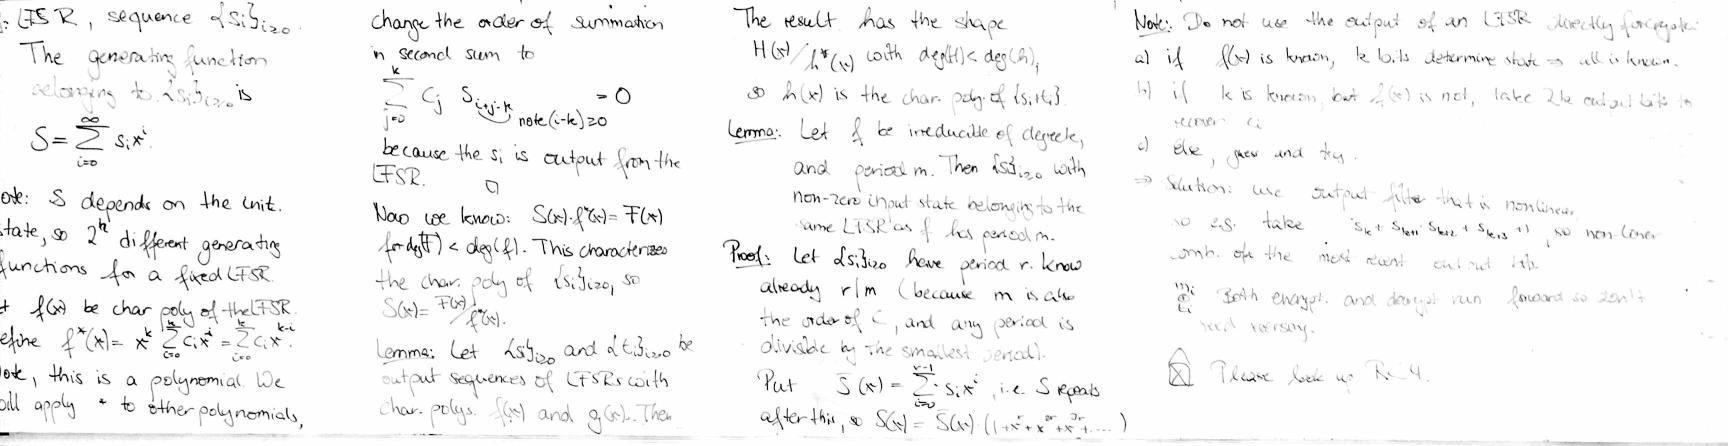 : LFSR, sequence {si}i≥0.
The generating function
belonging to {si}i≥0 is
S = ∑_{i=0}^{∞} si x^i.
ote: S depends on the init.
tate, so 2^k different generating
functions for a fixed LFSR.
t f(x) be char poly of the LFSR.
efine f*(x) = x^k ∑_{i=0}^{k} ci x^{-i} = ∑_{i=0}^{k} ci x^{k-i}.
ote, this is a polynomial. We
ill apply * to other polynomials,
change the order of summation
in second sum to
∑_{j=0}^{k} Cj S_{i+j-k} = 0
note (i-k) ≥ 0
because the si is output from the
LFSR. □
Now we know: S(x)·f*(x) = F(x)
for deg(F) < deg(f). This characterizes
the char. poly of {si}i≥0, so
S(x) = F(x)/f*(x).
Lemma: Let {si}i≥0 and {ti}i≥0 be
output sequences of LFSRs with
char. polys. f(x) and g(x). Then
The result has the shape
H(x)/h*(x) with deg(H) < deg(h),
so h(x) is the char. poly. of {si+ti}.
Lemma: Let f be irreducible of degree k,
and period m. Then {si}i≥0 with
non-zero input state belonging to the
same LFSR as f has period m.
Proof: Let {si}i≥0 have period r. know
already r|m (because m is also
the order of C, and any period is
divisible by the smallest period).
Put S̄(x) = ∑_{i=0}^{r-1} si x^i, i.e. S repeats
after this, so S(x) = S̄(x)·(1+x^r+x^{2r}+x^{3r}+....)
Note: Do not use the output of an LFSR directly for crypto:
a) if f(x) is known, k bits determine state ⇒ all is known.
b) if k is known, but f(x) is not, take 2k output bits to
recover ci
c) else, guess and try.
⇒ Solution: use output filter that is nonlinear,
so e.g. take sk + sk+1·sk+2 + sk+3 +1, so non-linear
comb. of the most recent output bits.
mi ⊕ Both encrypt. and decrypt run forward so don't
need reversing.
Please look up RC4.